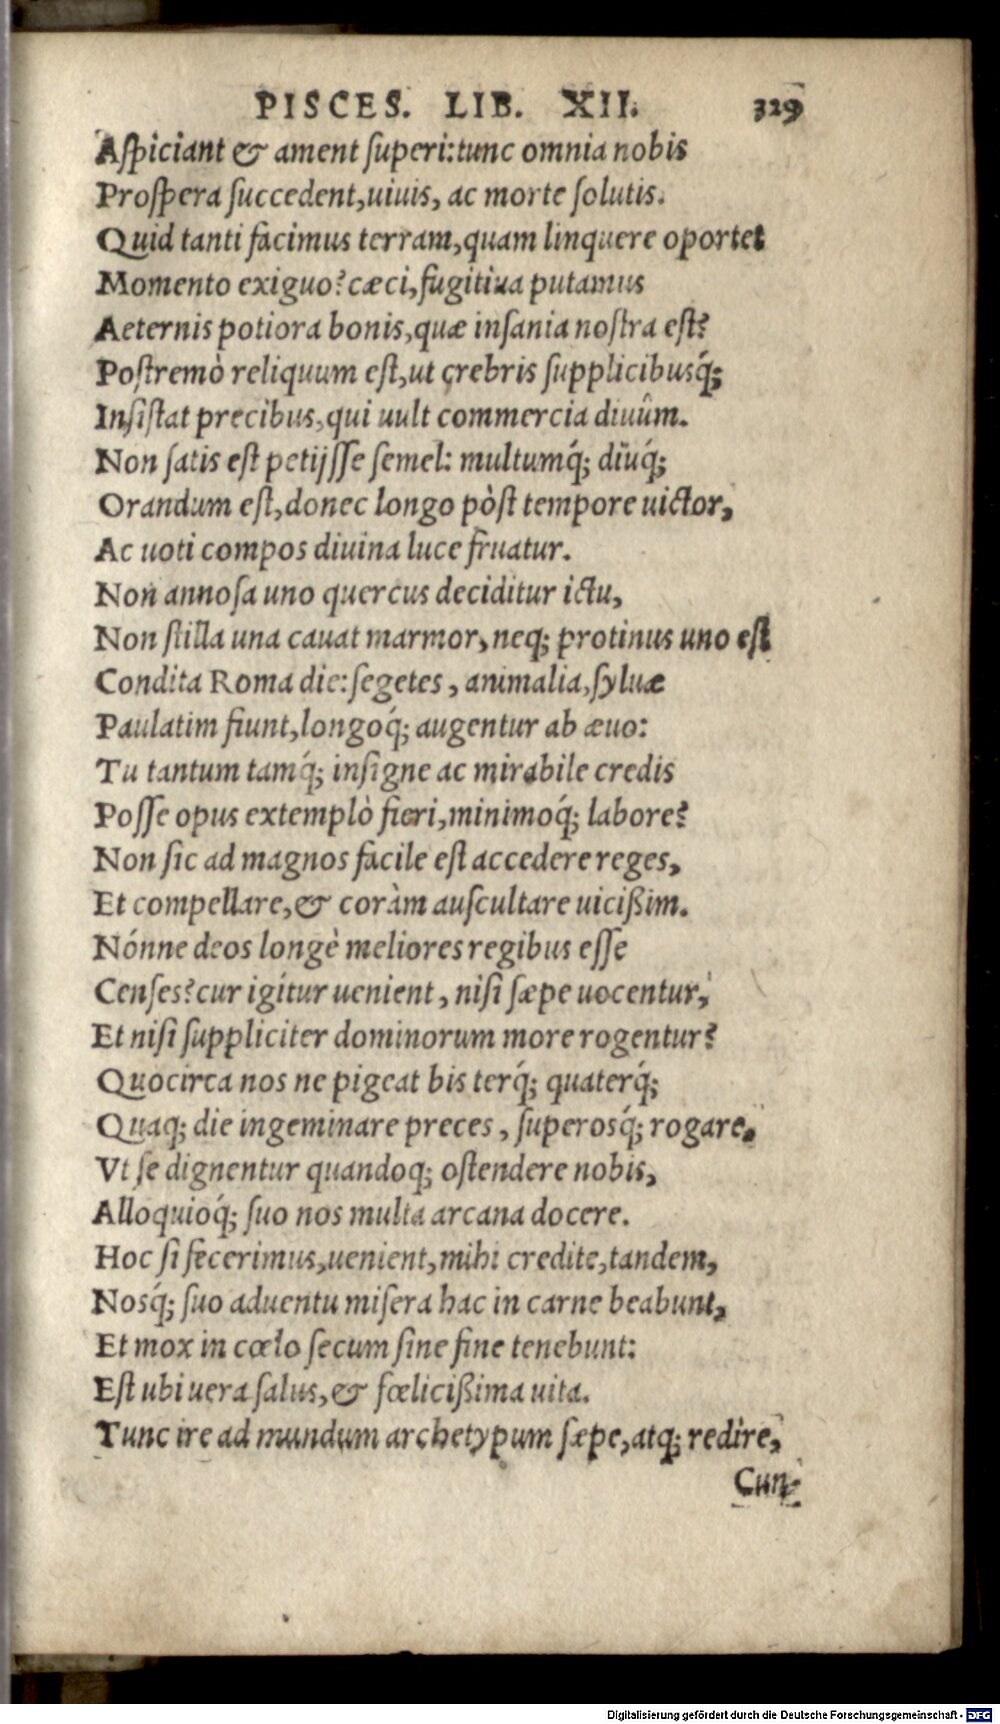 PISCES. LIB. XII. 329
Aſpiciant & ament ſuperi:tunc omnia nobis
Proſpera ſuccedent,uiuis, ac morte ſolutis.
Quid tanti facimus terram,quam linquere oportet
Momento exiguo?cæci,fugitiua putamus
Aeternis potiora bonis,quæ inſania noſtra eſt?
Poſtremò reliquum eſt,ut crebris ſupplicibusq́;
Inſiſtat precibus,qui uult commercia diuûm.
Non ſatis eſt petijſſe ſemel: multumq́; diuq́;
Orandum eſt,donec longo pòſt tempore uictor,
Ac uoti compos diuina luce fruatur.
Non annoſa uno quercus deciditur ictu,
Non ſtilla una cauat marmor,neq; protinus uno eſt
Condita Roma die:ſegetes, animalia,ſyluæ
Paulatim fiunt,longoq́; augentur ab æuo:
Tu tantum tamq́; inſigne ac mirabile credis
Poſſe opus extemplò fieri,minimoq́; labore?
Non ſic ad magnos facile eſt accedere reges,
Et compellare,& coràm auſcultare uicißim.
Nónne deos longè meliores regibus eſſe
Cenſes?cur igitur uenient, niſi ſæpe uocentur,
Et niſi ſuppliciter dominorum more rogentur?
Quocirca nos ne pigeat bis terq́; quaterq́;
Quaq; die ingeminare preces, ſuperosq́; rogare.
Vt ſe dignentur quandoq; oſtendere nobis,
Alloquioq́; ſuo nos multa arcana docere.
Hoc ſi fecerimus,uenient,mihi credite,tandem,
Nosq́; ſuo aduentu miſera hac in carne beabunt,
Et mox in cœlo ſecum ſine fine tenebunt:
Eſt ubi uera ſalus,& fœlicißima uita.
Tunc ire ad mundum archetypum ſæpe,atq; redire,
Cun-
Digitalisierung gefördert durch die Deutsche Forschungsgemeinschaft - DFG